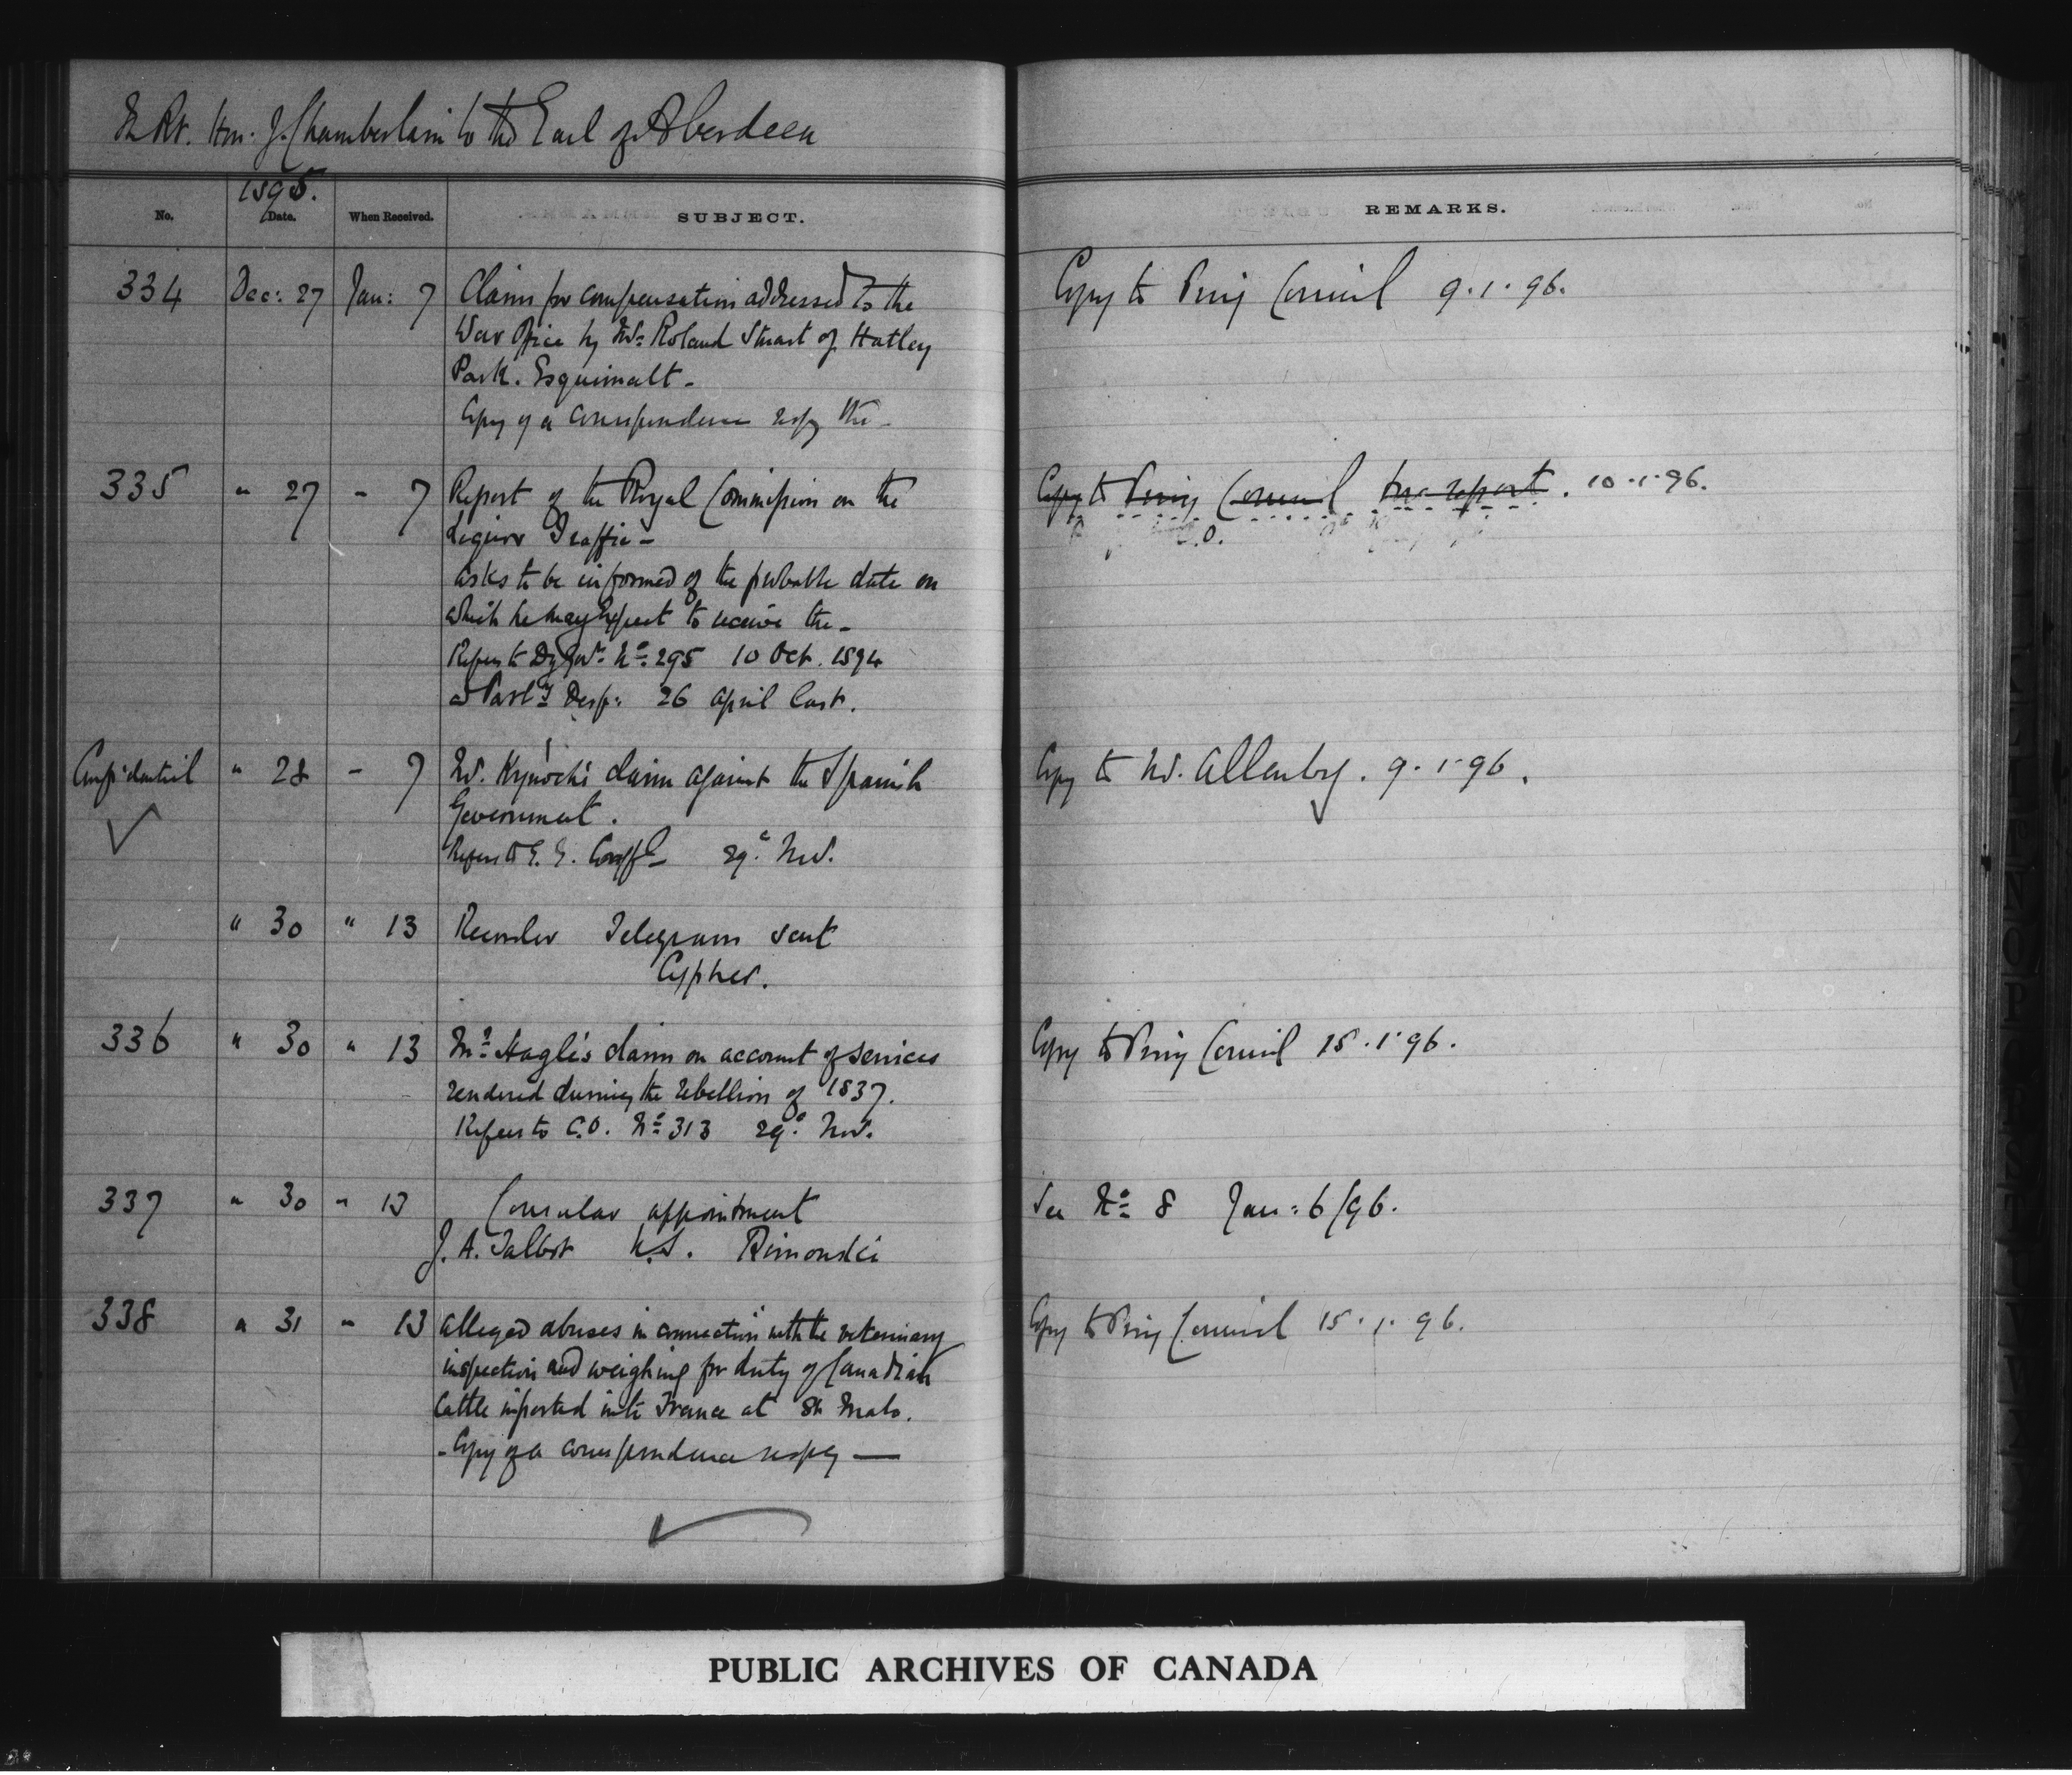 The Rt. Hon: J. Chamberlain to the Earl of Aberdeen
1895.
No. Date. When Received. SUBJECT. REMARKS.
334 Dec: 27 Jan: 7 Claim for compensation addressed to the
War Office by Mr. Roland Stuart of Hatley
Park. Esquimalt -
Copy of a correspondence respg the -
Copy to Privy Council 9.1.96.
335 " 27 " 7 Report of the Royal Commission on the
Liquor Traffic -
Asks to be informed of the probable date on
which he may expect to receive the -
Refers to No: 295 10 Oct. 1894
Desp: 26 April last.
Copy to Privy Council for report. 10.1.96.
Confidential " 28 - 7 Mr. Kynoch's claim against the Spanish
Government.
Refers to 29: Nov.
Copy to Mr. Allenby. 9.1.96.
" 30 " 13 Recorder Telegram sent
Cypher.
336 " 30 " 13 Mr: Hagle's claim on account of services
rendered during the rebellion of 1837.
Refers to C.O. No: 313 29: Nov.
Copy to Privy Council 15.1.96.
337 " 30 " 13 Consular appointment
J. A. Talbot U.S. Rimouski
See No: 8 Jan: 6/96.
338 " 31 " 13 Alleged abuses in connection with the veterinary
inspection and weighing for duty of Canadian
Cattle imported into France at St. Malo.
- Copy of a correspondence respg —
Copy to Privy Council 15.1.96.
PUBLIC ARCHIVES OF CANADA